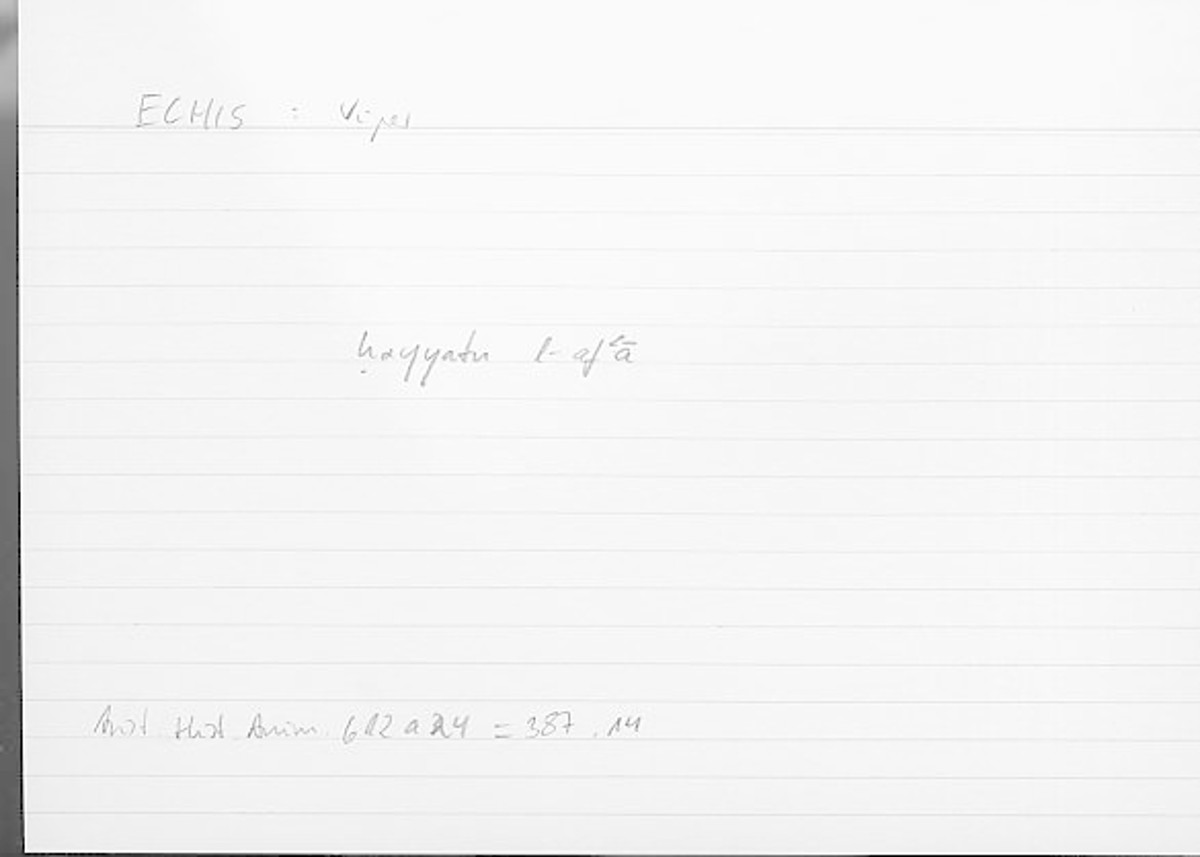 ECHIS : Viper
ḥayyatu l-afʿā
Arist Hist Anim. 612 a 24 = 387.14